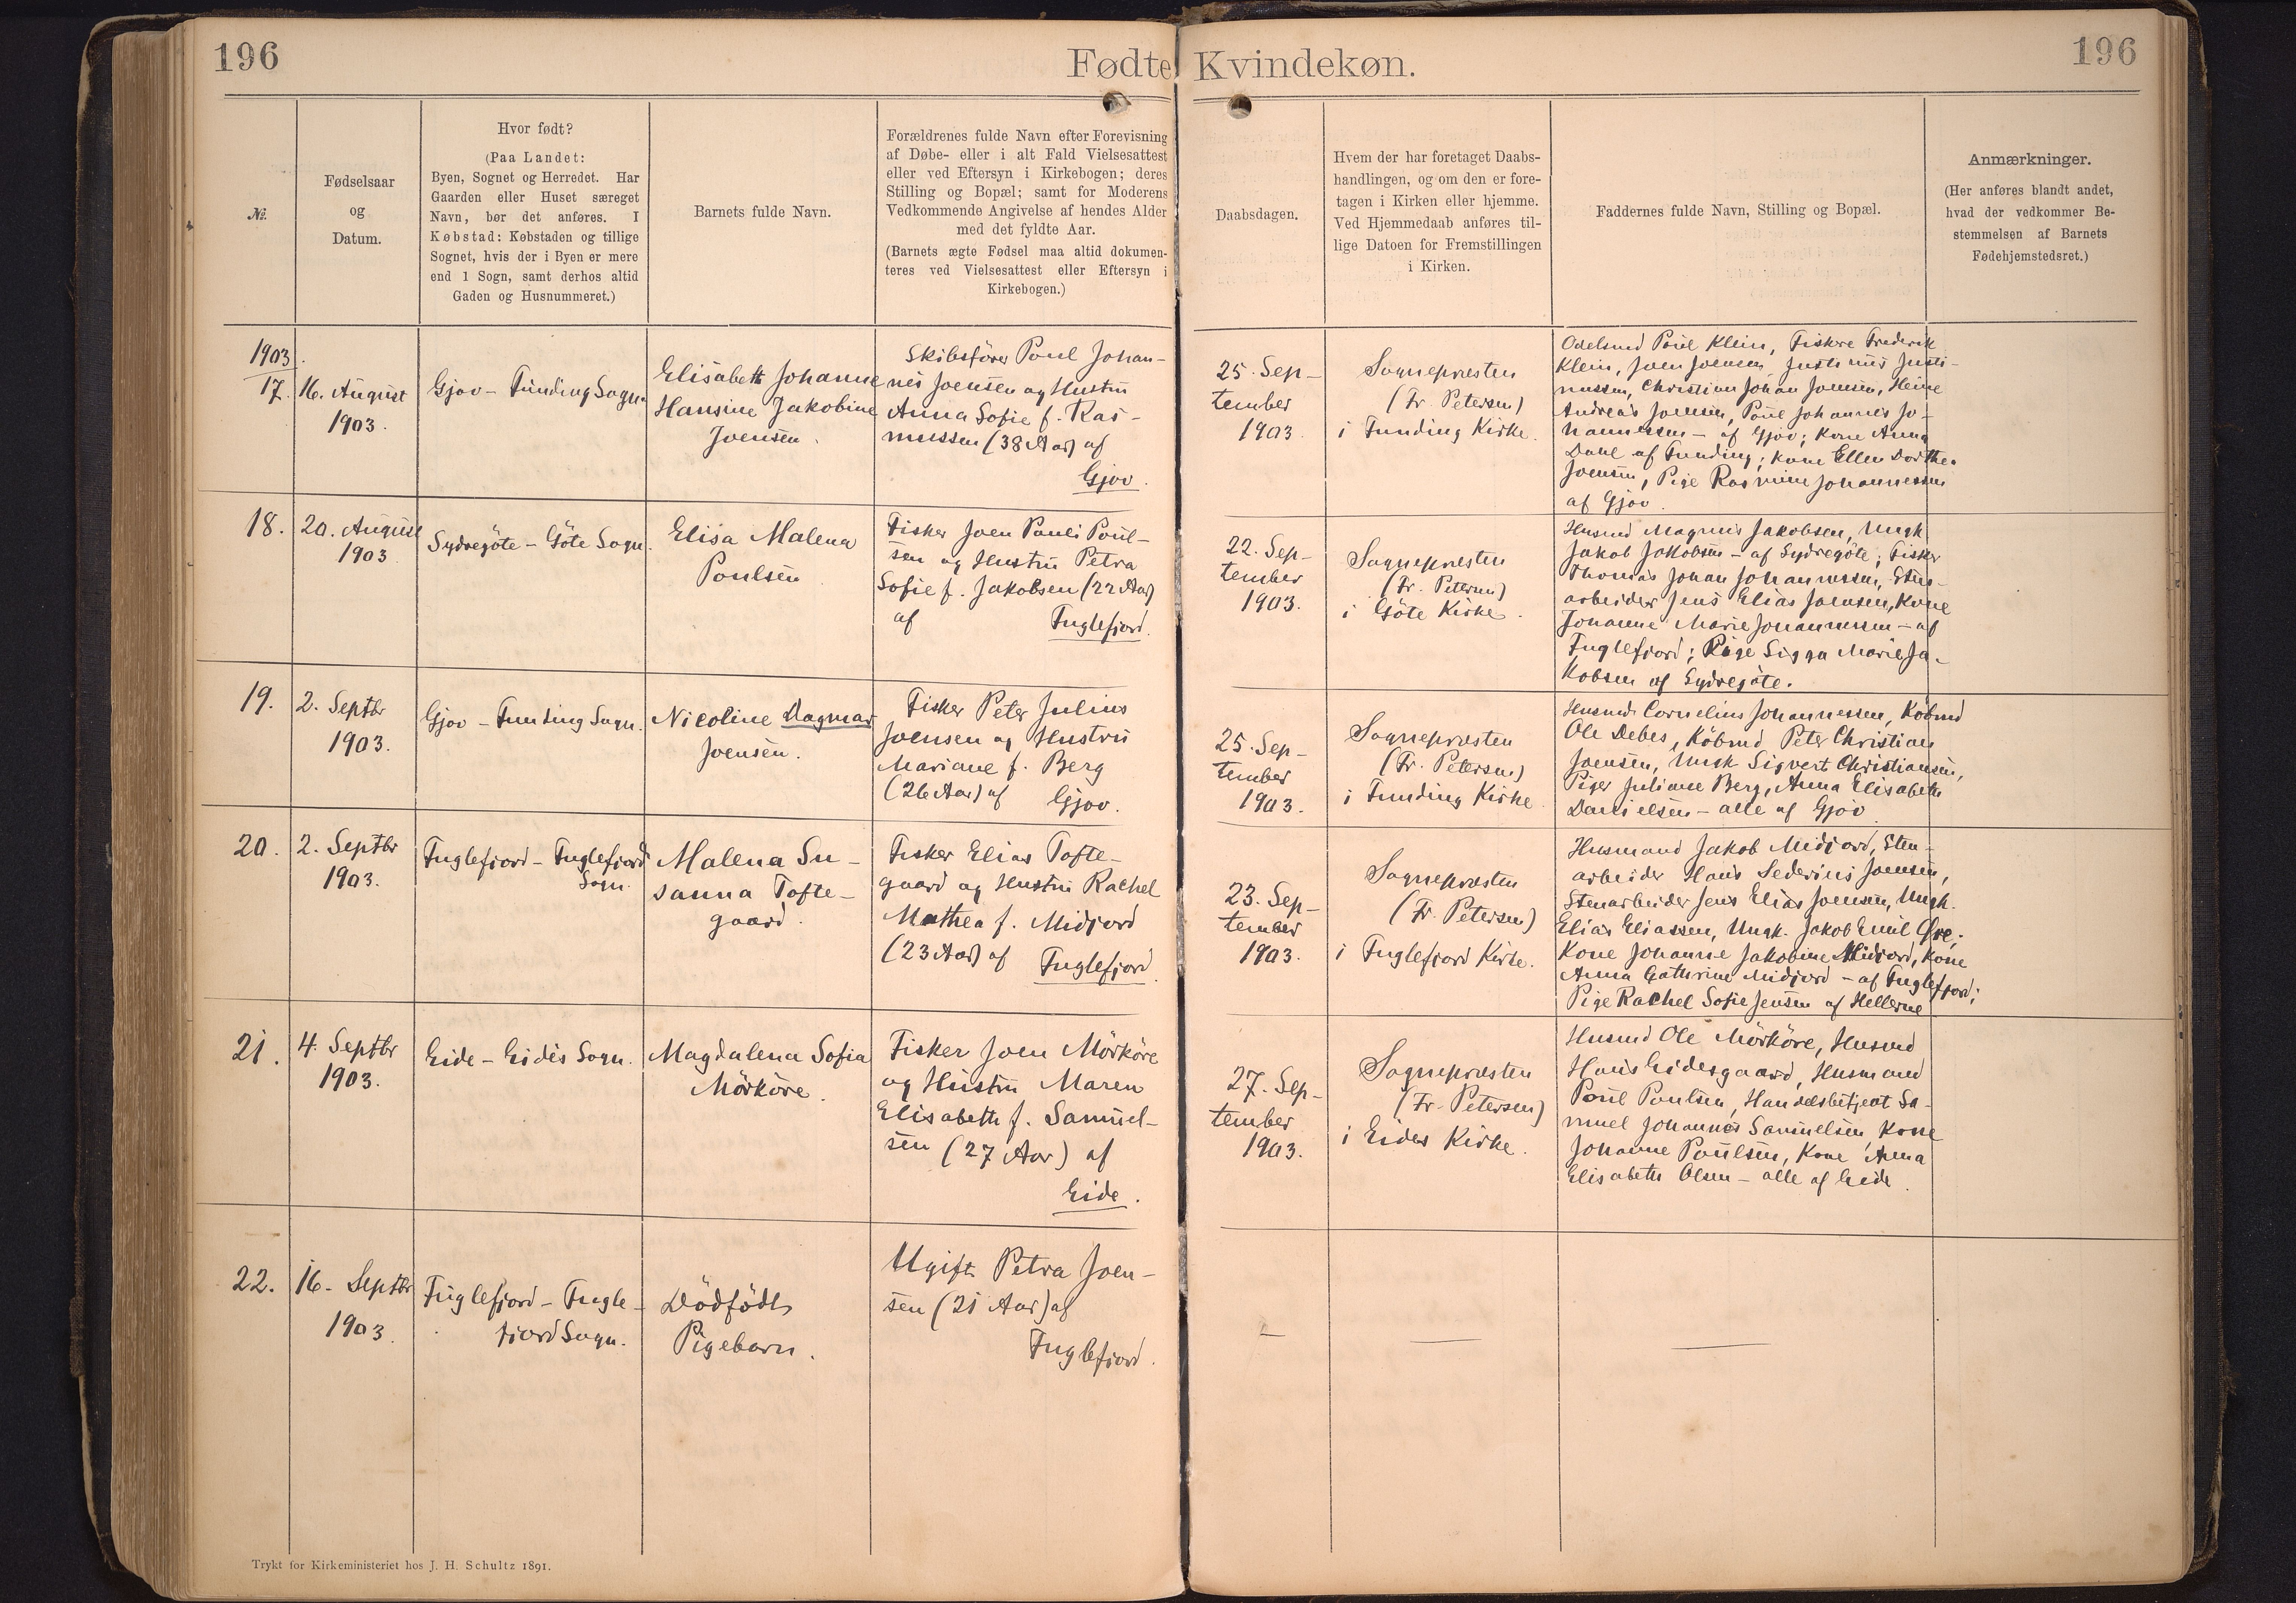 196
Fødte Kvindekøn.
196
№.
Fødselsaar
og
Datum.
Hvor født?
(Paa Landet:
Byen, Sognet og Herredet. Har
Gaarden eller Huset særeget
Navn, bør det anføres. I
Købstad: Købstaden og tillige
Sognet, hvis der i Byen er mere
end 1 Sogn, samt derhos altid
Gaden og Husnummeret.)
Barnets fulde Navn.
Forældrenes fulde Navn efter Forevisning
af Døbe- eller i alt Fald Vielsesattest
eller ved Eftersyn i Kirkebogen; deres
Stilling og Bopæl; samt for Moderens
Vedkommende Angivelse af hendes Alder
med det fyldte Aar.
(Barnets ægte Fødsel maa altid dokumen-
teres ved Vielsesattest eller Eftersyn i
Kirkebogen.)
Daabsdagen.
Hvem der har foretaget Daabs-
handlingen, og om den er fore-
tagen i Kirken eller hjemme.
Ved Hjemmedaab anføres til-
lige Datoen for Fremstillingen
i Kirken.
Faddernes fulde Navn, Stilling og Bopæl.
Anmærkninger.
(Her anføres blandt andet,
hvad der vedkommer Be-
stemmelsen af Barnets
Fødehjemstedsret.)
1903
17.
16. August
1903.
Gjov - Funding Sogn
Elisabeth Johanne
Hansine Jakobine
Joensen.
Skibsfører Poul Johan-
nes Joensen og Hustru
Anna Sofie f. Ras-
mussen (38 Aar) af
Gjov.
25. Sep-
tember
1903.
Sognepræsten
(Fr. Petersen)
i Funding Kirke.
Odelsmd Poul Klein, Fiskere Frederik
Klein, Joen Joensen, Justinus Justi-
nussen, Christian Johan Joensen, Heine
Andreas Joensen, Poul Johannes Jo-
hannessen - af Gjov; Kone Anna
Dahl af Funding; Kone Ellen Dorthea
Joensen, Pige Rasmine Johannessen
af Gjov.
18.
20. August
1903
Sydregöte - Göte Sogn.
Elisa Malena
Poulsen
Fisker Joen Pauli Poul-
sen og Hustru Petra
Sofie f. Jakobsen (22 Aar)
af Fuglefjord.
22. Sep-
tember
1903.
Sognepræsten
(Fr. Petersen)
i Göte Kirke.
Husmd Magnus Jakobsen, Ungk.
Jakob Jakobsen - af Sydregöte; Fisker
Thomas Johan Johannessen, Sten-
arbeider Jens Elias Joensen, Kone
Johanne Marie Johannessen - af
Fuglefjord; Pige Sigga Marie Ja-
kobsen af Sydregöte.
19.
2. Septbr
1903.
Gjov - Funding Sogn.
Nicoline Dagmar
Joensen.
Fisker Peter Julius
Joensen og Hustru
Mariane f. Berg
(26 Aar) af Gjov.
25. Sep-
tember
1903.
Sognepræsten
(Fr. Petersen)
i Funding Kirke.
Husmd Cornelius Johannessen, Köbmd
Ole Debes, Köbmd Peter Christian
Joensen, Ungk Sigvert Christiansen,
Piger Juliane Berg, Anna Elisabeth
Danielsen - alle af Gjov.
20.
2. Septbr
1903.
Fuglefjord - Fuglefjord
Sogn.
Malena Su-
sanna Tofte-
gaard.
Fisker Elias Tofte-
gaard og Hustru Rachel
Mathea f. Midjord
(23 Aar) af Fuglefjord.
23. Sep-
tember
1903.
Sognepræsten
(Fr. Petersen)
i Fuglefjord Kirke.
Husmand Jakob Midjord, Sten-
arbeider Hans Sederius Joensen,
Stenarbeider Jens Elias Joensen, Ungk.
Elias Eliassen, Ungk. Jakob Emil Øre;
Kone Johanne Jakobine Midjord, Kone
Anna Cathrine Midjord - af Fuglefjord;
Pige Rachel Sofie Jensen af Hellerne
21.
4. Septbr
1903.
Eide - Eides Sogn.
Magdalena Sofia
Mörköre.
Fisker Joen Mörköre
og Hustru Maren
Elisabeth f. Samuel-
sen (27 Aar) af
Eide.
27. Sep-
tember
1903.
Sognepræsten
(Fr. Petersen)
i Eides Kirke.
Husmd Ole Mörköre, Husmd
Hans Eidesgaard, Husmand
Poul Poulsen, Handelsbetjent Sa-
muel Johannes Samuelsen, Kone
Johanne Poulsen, Kone Anna
Elisabeth Olsen - alle af Eide.
22.
16. Septbr
1903.
Fuglefjord - Fugle-
fjord Sogn.
Dödfödt
Pigebarn.
Ugift Petra Joen-
sen (21 Aar) af
Fuglefjord.
Trykt for Kirkeministeriet hos J. H. Schultz 1891.